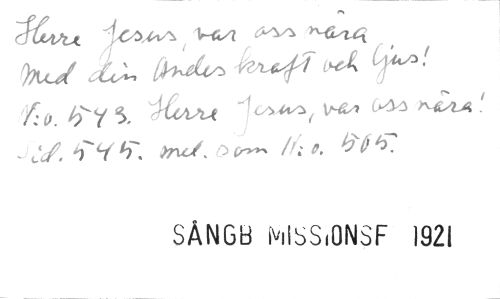 Herre Jesus, var oss nära
Med din Andes kraft och ljus!
N:o. 543. Herre Jesus, var oss nära!
Sid. 545. mel. som N:o. 505.
SÅNGB MISSIONSF 1921